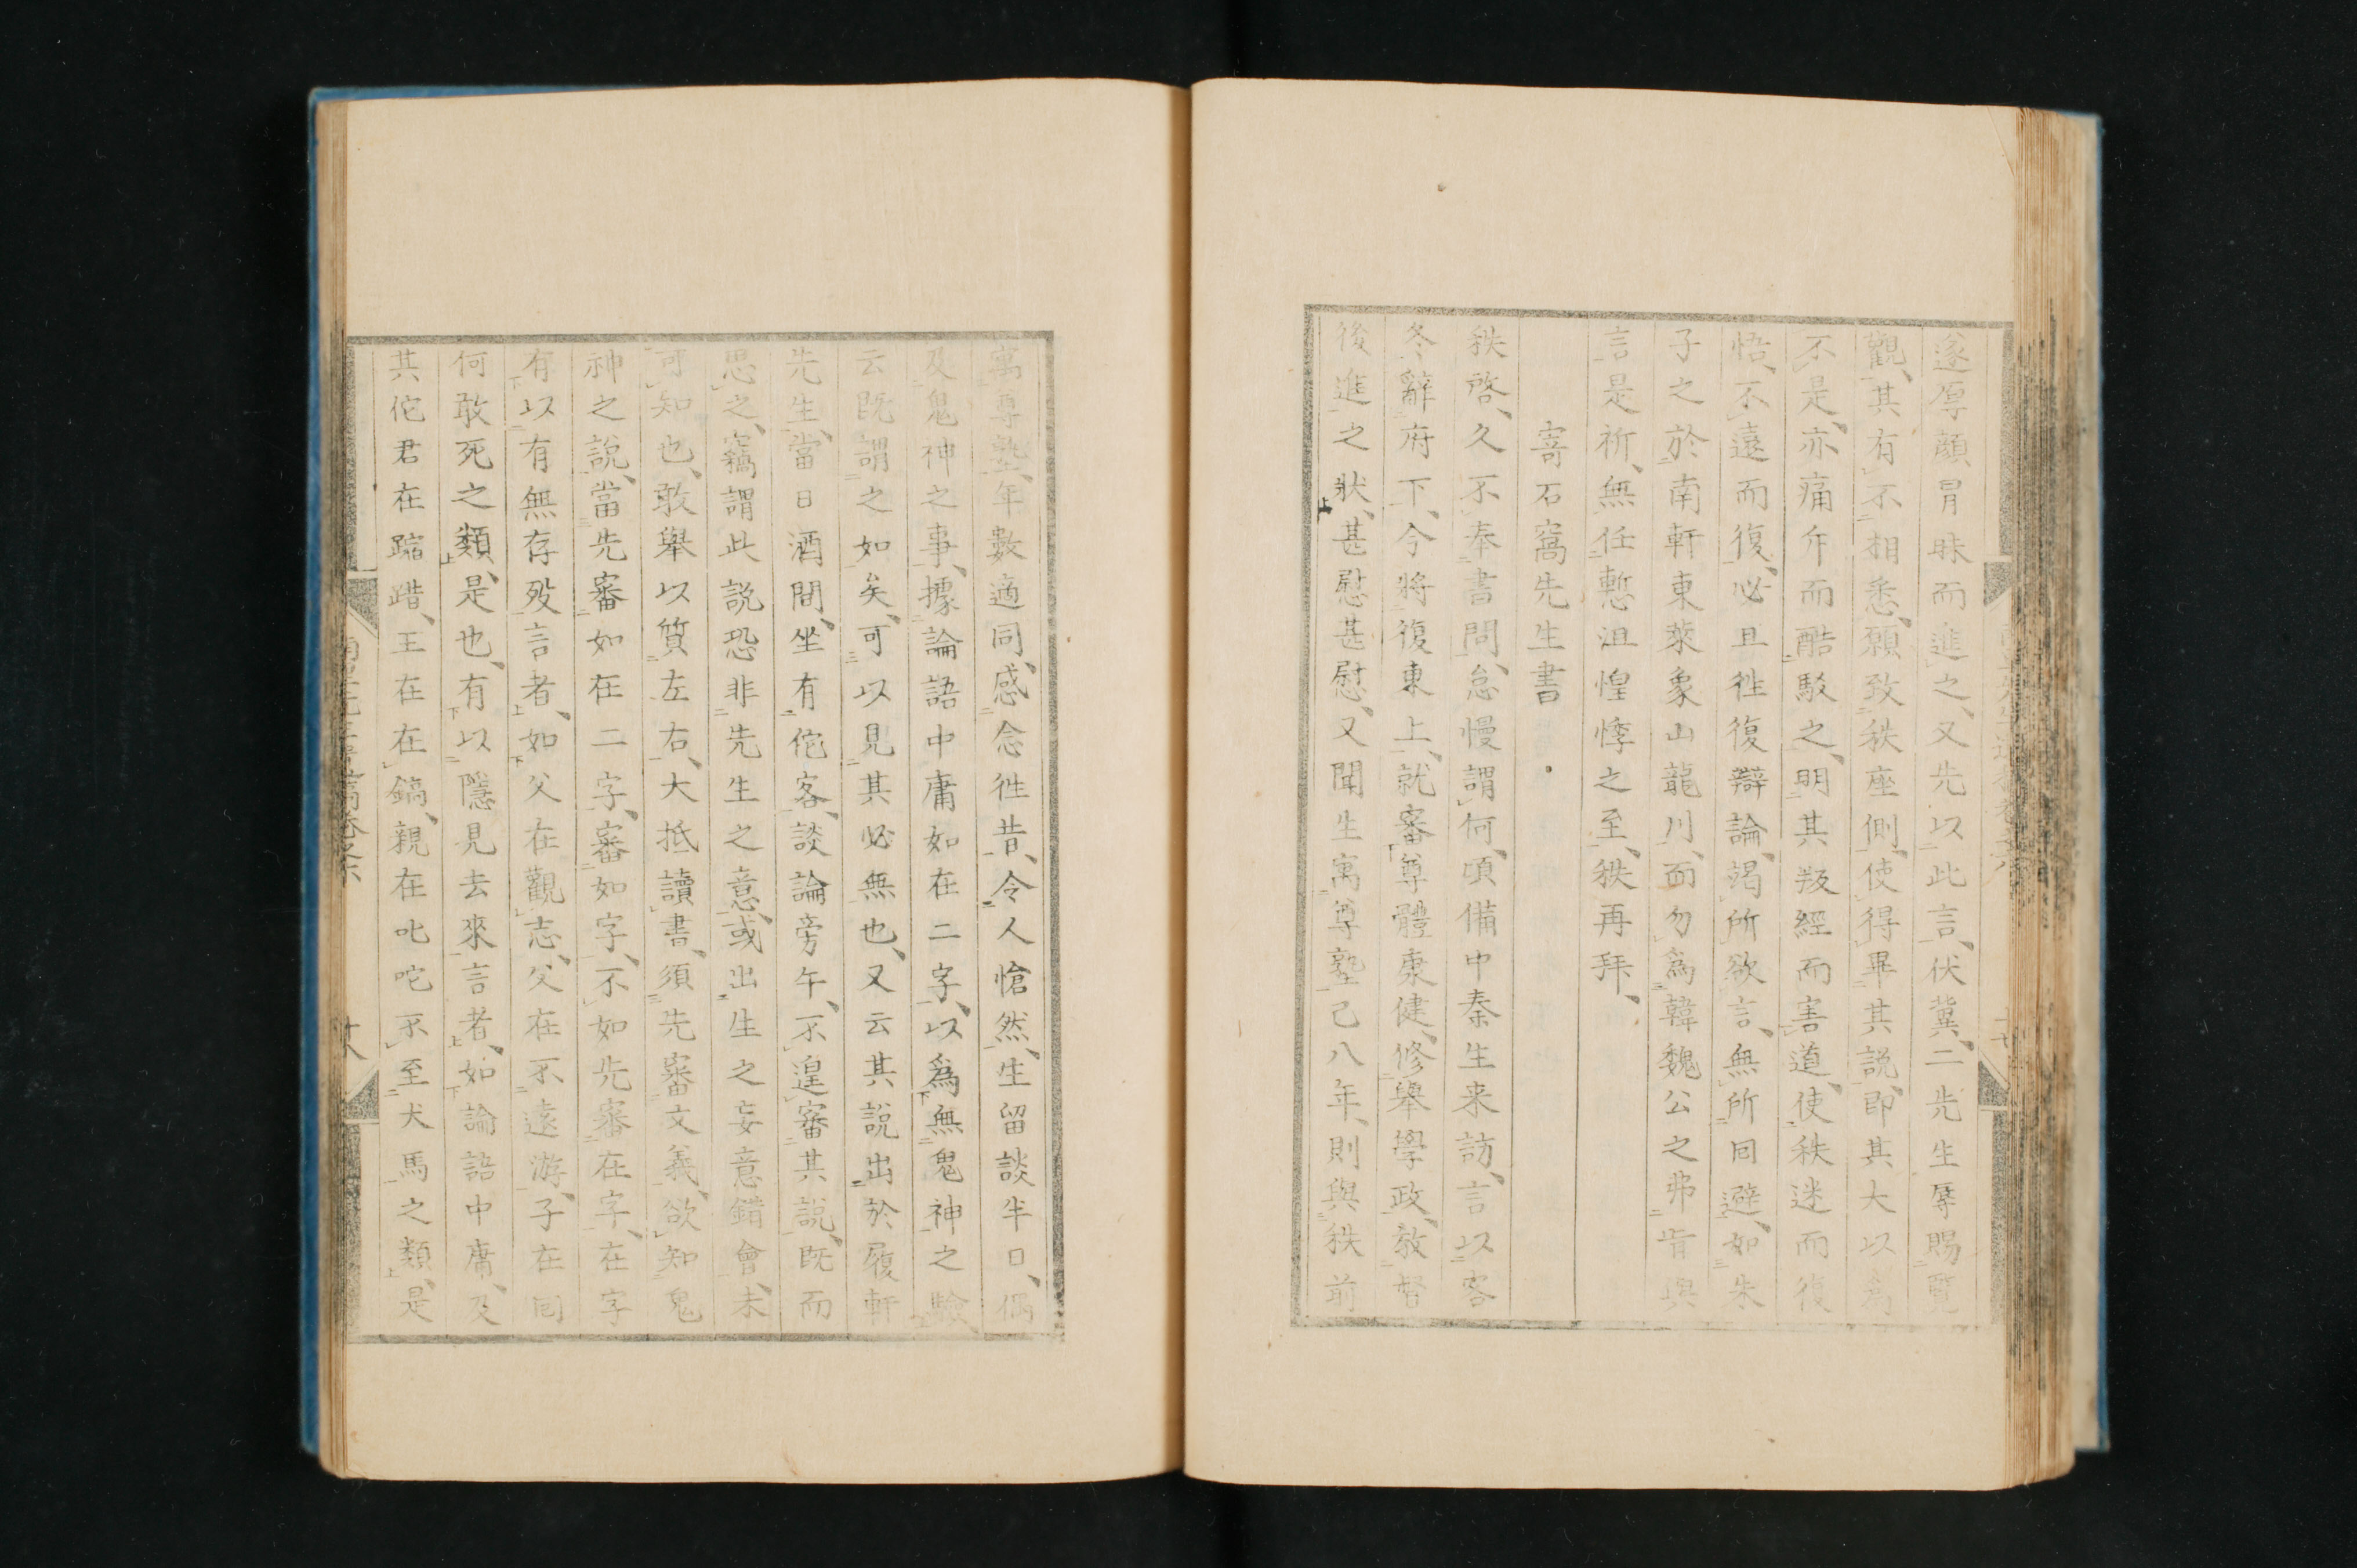 遂厚顔冒昧而進之、又先以此言、伏冀、二先生辱賜覧
觀、其有不相悉、願致秩座側、使得畢其説、即其大以爲
不是、亦痛斥而酷駁之、明其叛經而害道、使秩迷而復
悟、不遠而復、必且徃復辯論、竭所欲言、無所回避、如朱
子之於南軒東萊象山龍川、而勿爲韓魏公之弗肯與
言是祈、無任慙沮惶悸之至、秩再拜、
寄石窩先生書
秩啓、久不奉書問、怠慢謂何、頃備中秦生来訪、言以客
冬辭府下、今將復東上、就審尊體康健、修舉學政、敎督
後進之狀、甚慰甚慰、又聞生寓尊塾已八年、則與秩前
寓尊塾、年數適同、感念徃昔、令人愴然、生留談半日、偶
及鬼神之事、據論語中庸如在二字、以爲無鬼神之驗
云既謂之如矣、可以見其必無也、又云其説出於履軒
先生、當日酒間、坐有佗客、談論旁午、不遑審其説、既而
思之、竊謂此説恐非先生之意、或出生之妄意錯會、未
可知也、敢舉以質左右、大抵讀書、須先審文義、欲知鬼
神之説、當先審如在二字、審如字、不如先審在字、在字
有以有無存殁言者、如父在觀志、父在不遠游、子在回
何敢死之類、是也、有以隱見去來言者、如論語中庸、及
其佗君在踧踖、王在在鎬、親在叱咤不至犬馬之類、是